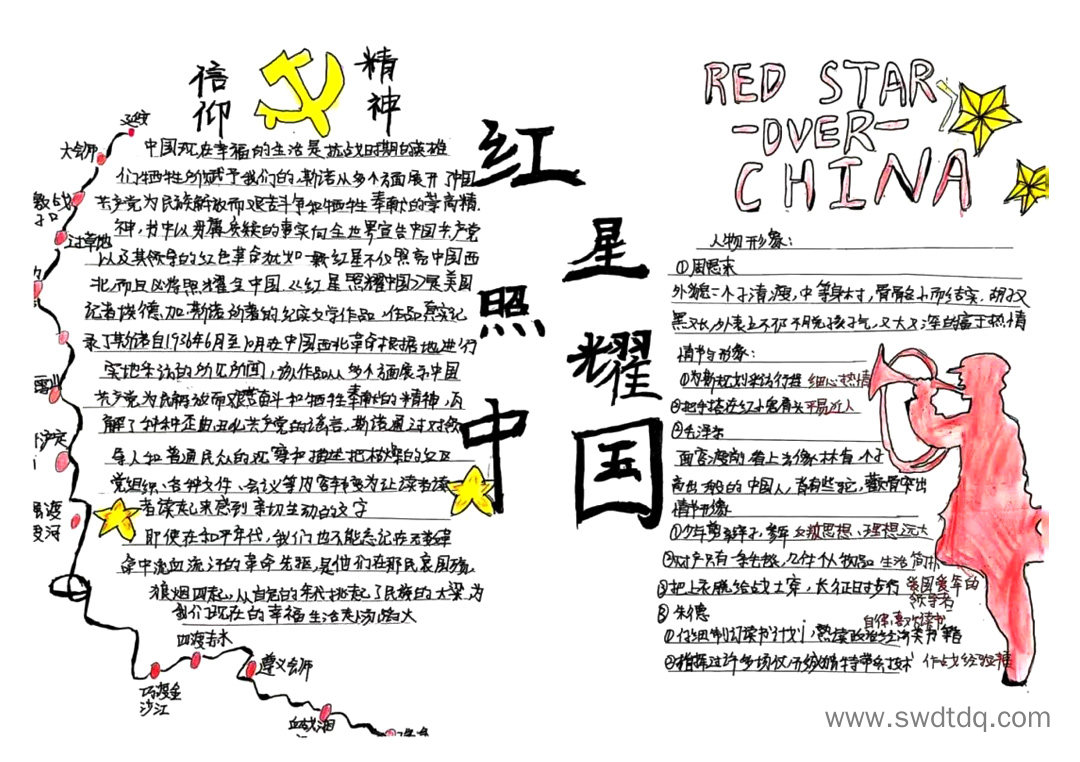 信仰
精神
红星照耀中国
RED STAR
-OVER-
CHINA
大会师
过草地
四渡赤水
遵义会师
巧渡金沙江
血战湘
中国现在幸福的生活是抗战时期的英雄
们牺牲所赋予我们的，斯诺从多个方面展开了中国
共产党为民族解放而艰苦斗争和牺牲奉献的崇高精
神，书中以毋庸置疑的事实向全世界宣告中国共产党
以及其领导的红色革命犹如一颗红星不仅照亮中国西
北，而且必将照耀全中国，《红星照耀中国》是美国
记者埃德加·斯诺所著的纪实文学作品，作品真实记
录了斯诺自1936年6月至10月在中国西北革命根据地进行
实地采访的所见所闻，该作品从多个方面展示中国
共产党为民解放而艰苦奋斗和牺牲奉献的精神，瓦
解了种种歪曲丑化共产党的谣言，斯诺通过对领
导人和普通民众的观察和描述把枯燥的红区
党组织、各种文件、会议等内容转变为让读者读
者读起来感到亲切生动的文字
即使在和平年代，我们也不能忘记在无数革
命中流血流汗的革命先驱，是他们在那民哀国残
狼烟四起，从自己的年代挑起了民族的大梁，为
我们现在的幸福生活赴汤蹈火
人物形象：
①周恩来
外貌：个子清瘦，中等身材，骨骼小而结实，胡子又
黑又长，外表上仍不脱孩子气，又大又深的富于热情
情节与形象：
①为斯诺规划采访行程 细心热情
②把手搭在红小鬼肩头 平易近人
②毛泽东
面容瘦削，看上去像林肯，个子
高出一般的中国人，背有些驼，颧骨突出
情节形象
①少年剪辫子，参军 反叛思想，理想远大
②财产只有一条毛毯，几件个人物品 生活简朴
③把上衣脱给战士穿，长征时步行 爱国爱年的领导者
③朱德
①仔细制订读书计划，熟读政治经济类书籍 自律，喜欢读书
②指挥过许多场仗，研究游击特带兵技术 作战经验丰富
www.swdtdq.com